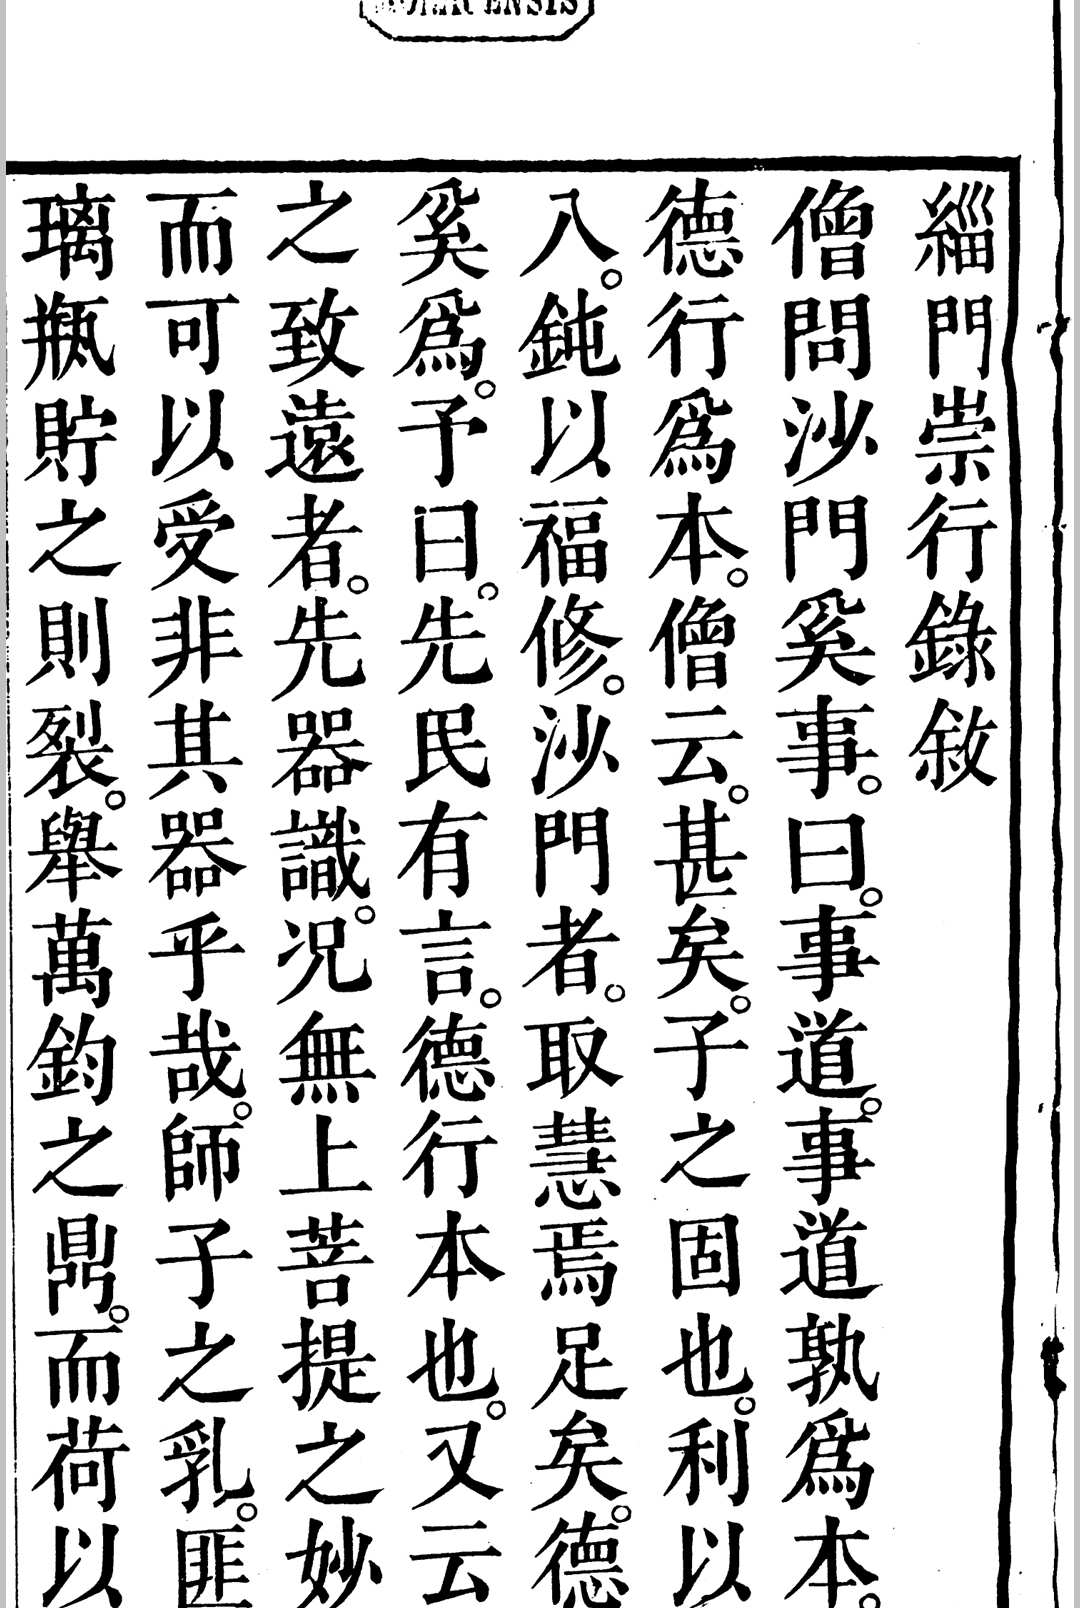 緇門崇行錄敘
僧問沙門奚事。曰。事道。事道孰爲本。
德行爲本。僧云。甚矣。子之固也。利以
入。鈍以福修。沙門者。取慧焉足矣。德
奚爲。予曰。先民有言。德行本也。又云
之致遠者。先器識。况無上菩提之妙
而可以受非其器乎哉。師子之乳。匪
璃瓶貯之則裂。舉萬鈞之鼎。而荷以